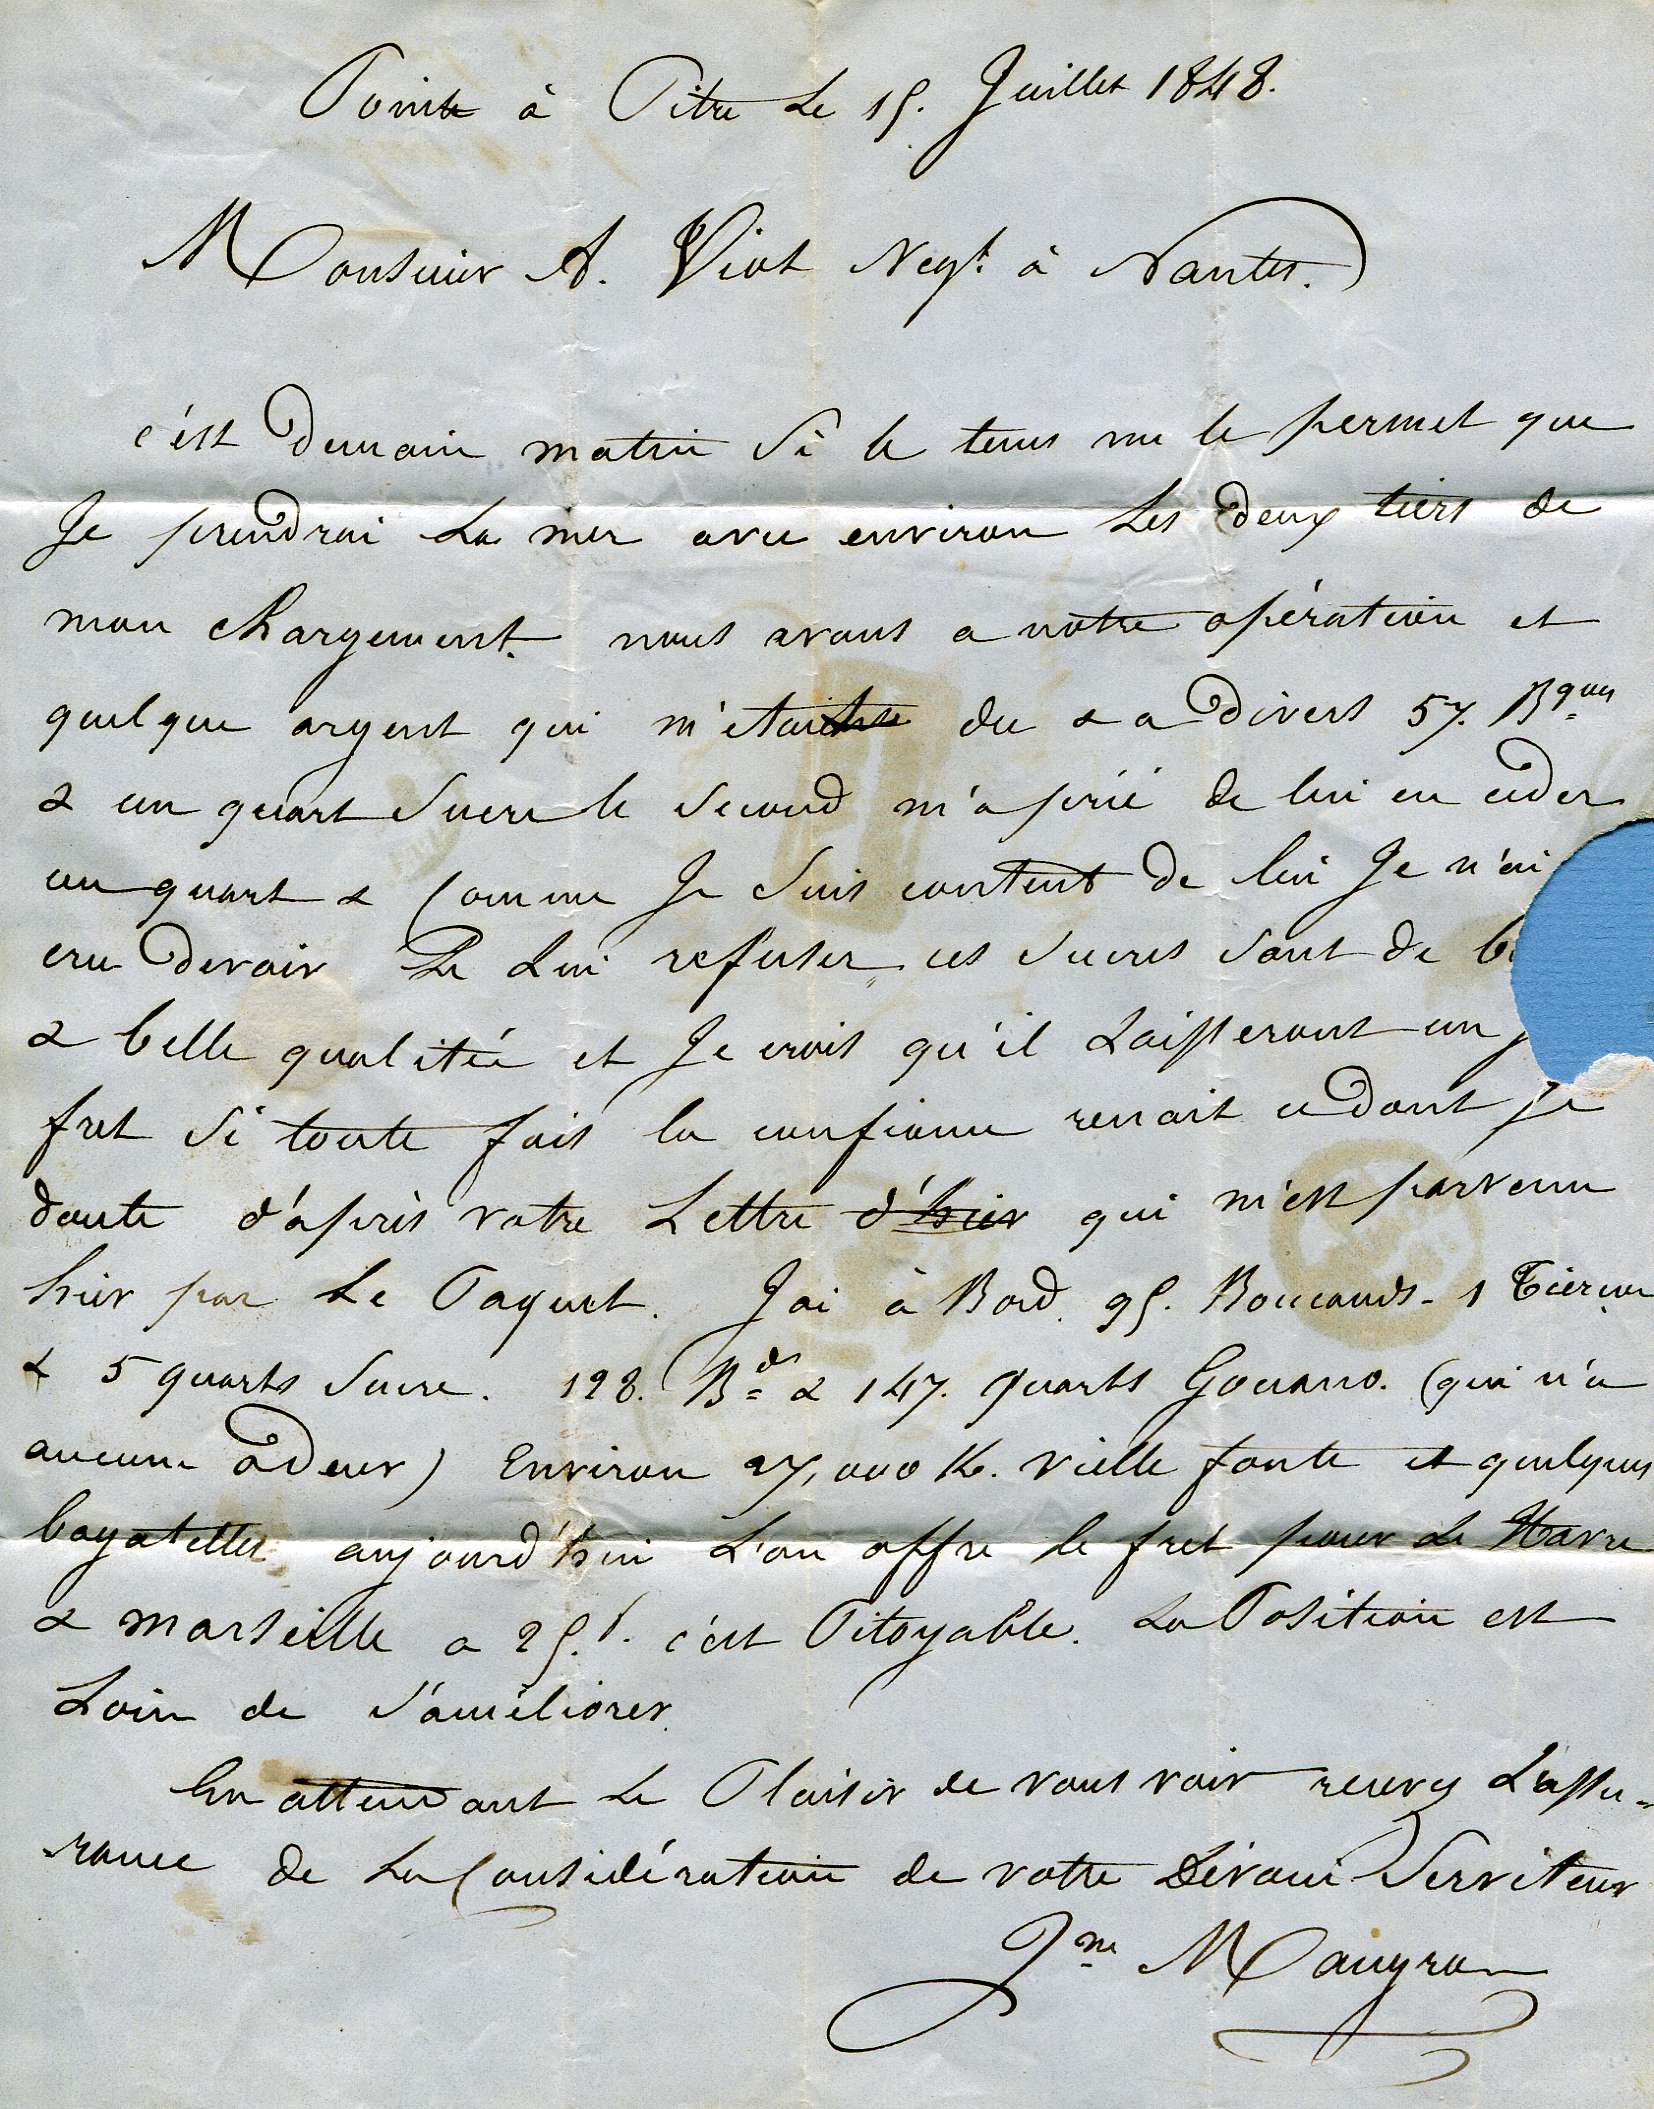 Pointe à Pitre Le 15. Juillet 1848.
Monsieur A. Viot Negt. à Nantes.
c'ést Demain matin Si le tems me le permet que
Je prendrai La mer avec environ Les deux tiers de
mon chargement. nous avons a notre opération et
quelque argent qui m'etaient du & a Divers 57. Bques
& un quart Sucre le Second m'a prié de lui en ceder
un quart & Comme Je Suis content de lui Je n'ai
cru Devoir Le Lui refuser ces Sucres Sont de
& belle qualitée et Je crois qu'il Laisseront un
fret Si toute fois la confiance renait ce dont Je
doute d'après votre Lettre d'hier qui m'est parvenu
hier par Le Paquet. J'ai à Bord. 95. Boucauds - 1 Tierçon
& 5 quarts Sucre. 128. Bds & 147. quarts Gouano. (qui n'a
aucune odeur) Environ 27,000 K. vielle fonte et quelques
bagatelles aujourd'hui L'on offre le fret pour Le Havre
& marseille a 25.f. c'est Pitoyable. La Position est
Loin de S'améliorer.
En attendant Le Plaisir de vous voir recevez L'assu-
rance de La Considération de votre Dévoué Serviteur
Jne